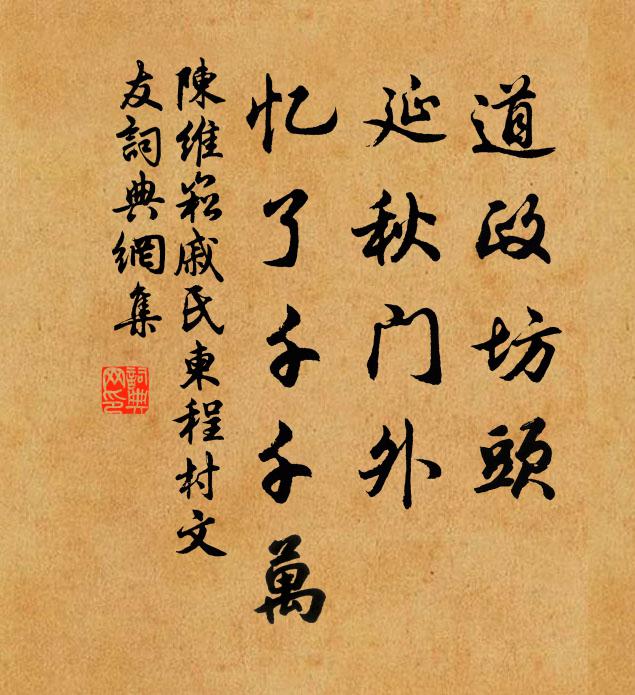 道政坊頭
延秋门外
忆了千千萬
陳維崧戚氏東程村文
友詞典網集
詞典
网印